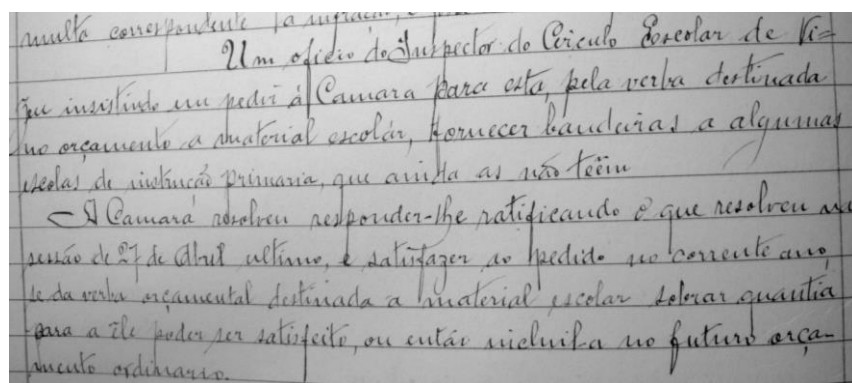 multa correspondente
Um oficio do Inspector do Circulo Escolar de Vi-
zeu insistindo em pedir á Camara para esta, pela verba destinada
no orçamento a material escolár, fornecer bandeiras a algumas
escolas de instrução primaria, que ainda as não teëm
A Camara resolveu responder-lhe ratificando o que resolveu na
sessão de 27 de Abril ultimo, e satisfazer ao pedido no corrente ano,
se da verba orçamental destinada a material escolar sobrar quantia
para a ele poder ser satisfeito, ou então inclui-la no futuro orça-
mento ordinario.